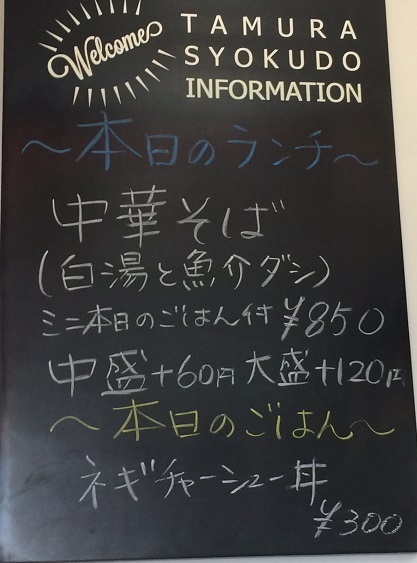 Welcome
TAMURA
SYOKUDO
INFORMATION
～本日のランチ～
中華そば
(白湯と魚介ダシ)
ミニ本日のごはん付 ¥850
中盛+60円 大盛+120円
～本日のごはん～
ネギチャーシュー丼
¥300